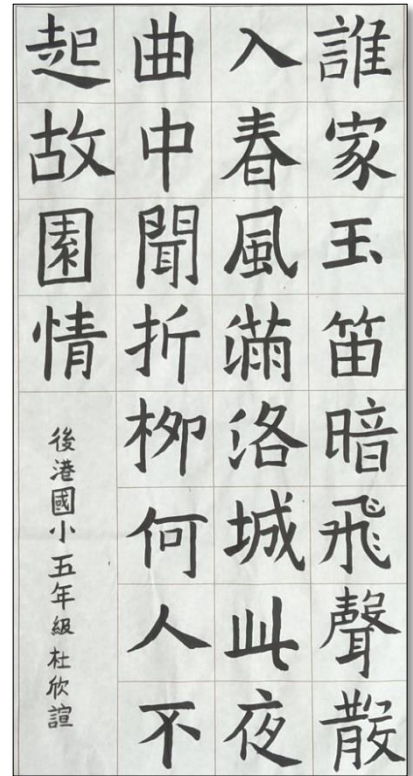 誰家玉笛暗飛聲散
入春風滿洛城此夜
曲中聞折柳何人不
起故園情
後港國小五年級杜欣諠